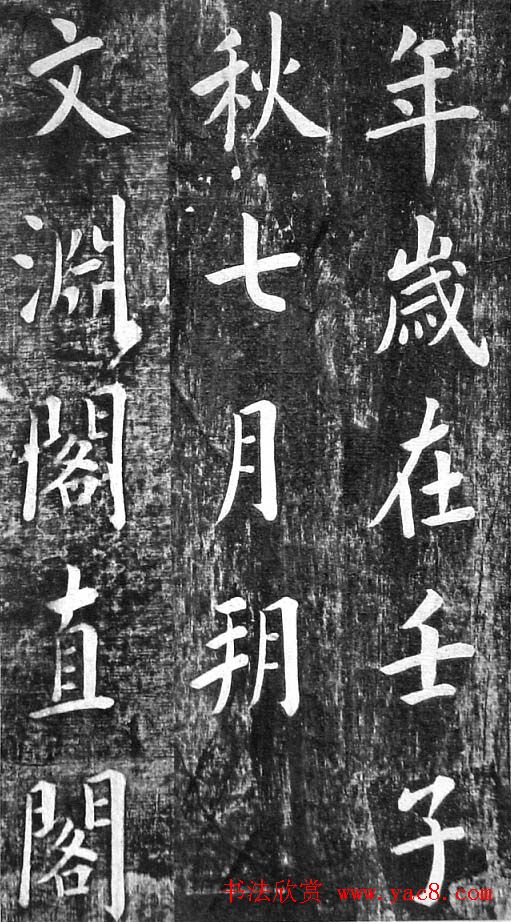 年歲在壬子
秋七月朔
文淵閣直閣
书法欣赏 www.yac8.com